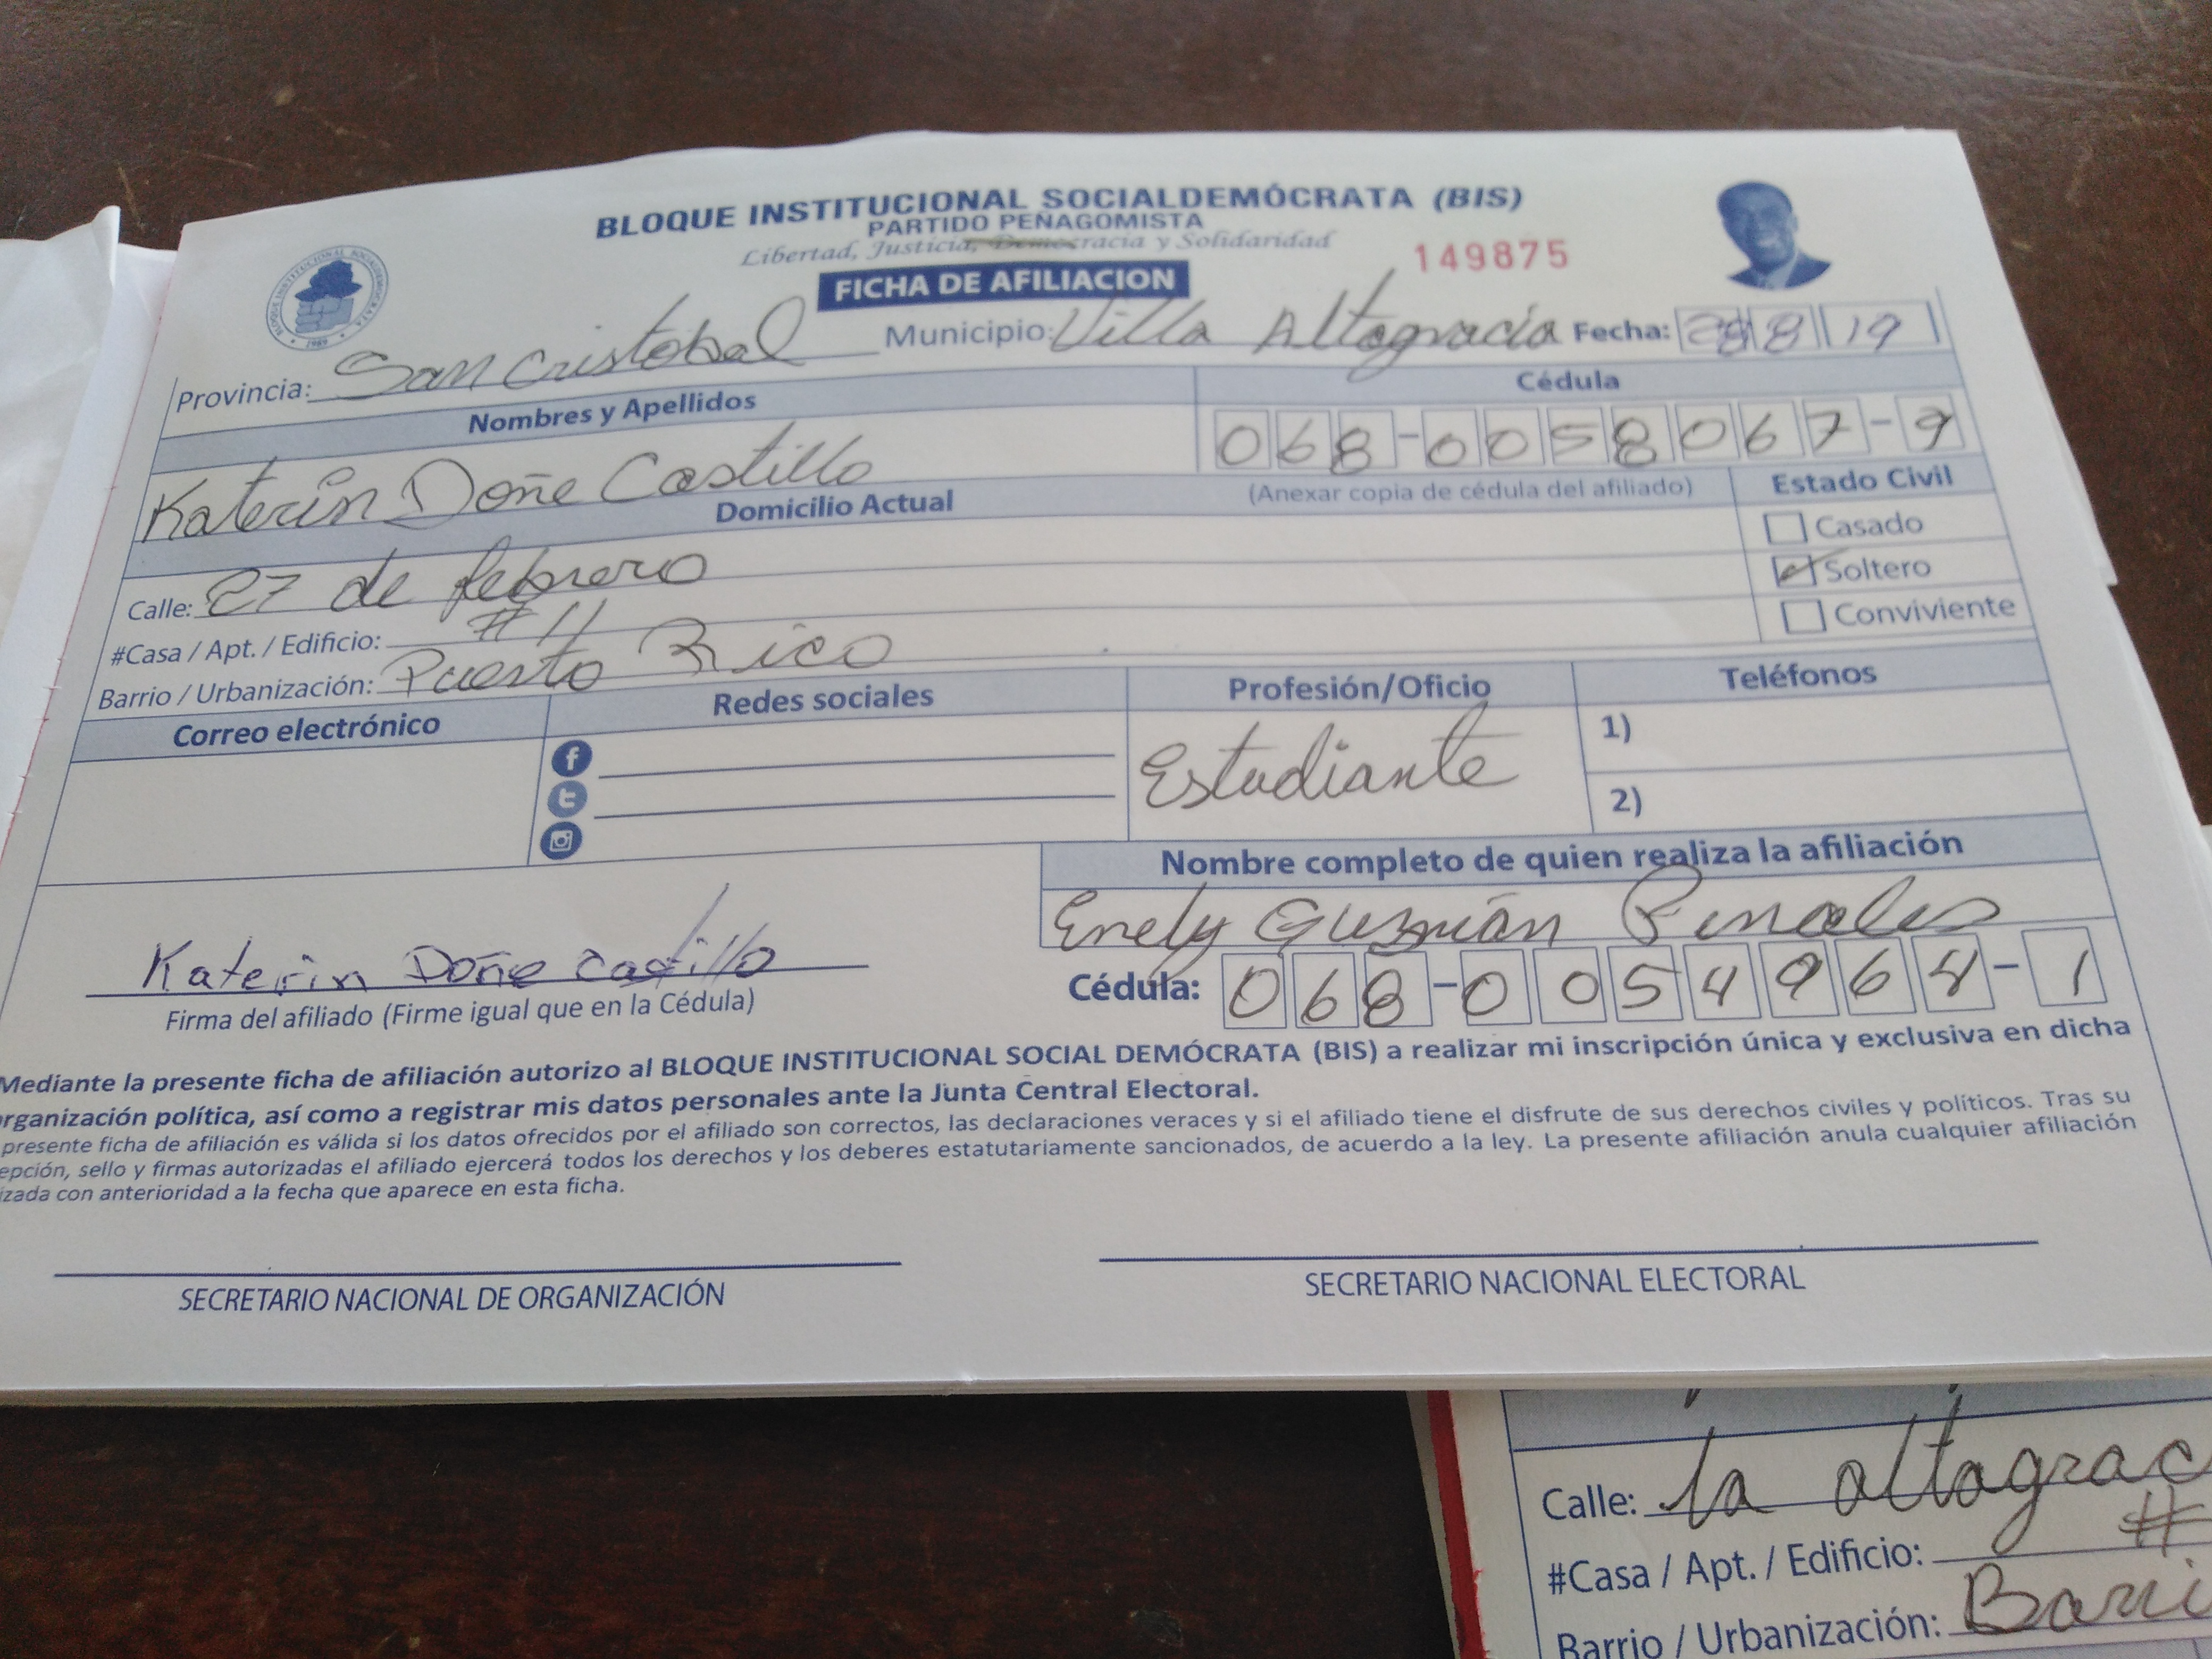 BLOQUE INSTITUCIONAL SOCIALDEMÓCRATA (BIS)
PARTIDO PEÑAGOMISTA
Libertad, Justicia, Democracia y Solidaridad
149875
FICHA DE AFILIACION
BLOQUE INSTITUCIONAL SOCIALDEMOCRATA
1989
Provincia: San Cristobal Municipio: Villa Altagracia Fecha: 8 19
Nombres y Apellidos Cédula
Katerin Doñe Castillo 068-0058067-9
(Anexar copia de cédula del afiliado)
Domicilio Actual Estado Civil
Calle: 27 de febrero Casado
#Casa / Apt. / Edificio: #11 Soltero
Barrio / Urbanización: Puerto Rico Conviviente
Correo electrónico Redes sociales Profesión/Oficio Teléfonos
Estudiante 1)
2)
Nombre completo de quien realiza la afiliación
Enely Guzmán
Katerin Doñe Castillo
Cédula: 068-0054964-1
Firma del afiliado (Firme igual que en la Cédula)
Mediante la presente ficha de afiliación autorizo al BLOQUE INSTITUCIONAL SOCIAL DEMÓCRATA (BIS) a realizar mi inscripción única y exclusiva en dicha
organización política, así como a registrar mis datos personales ante la Junta Central Electoral.
presente ficha de afiliación es válida si los datos ofrecidos por el afiliado son correctos, las declaraciones veraces y si el afiliado tiene el disfrute de sus derechos civiles y políticos. Tras su
epción, sello y firmas autorizadas el afiliado ejercerá todos los derechos y los deberes estatutariamente sancionados, de acuerdo a la ley. La presente afiliación anula cualquier afiliación
izada con anterioridad a la fecha que aparece en esta ficha.
SECRETARIO NACIONAL DE ORGANIZACIÓN SECRETARIO NACIONAL ELECTORAL
Calle: la altagrac
#Casa / Apt. / Edificio: #
Barrio / Urbanización: Barri